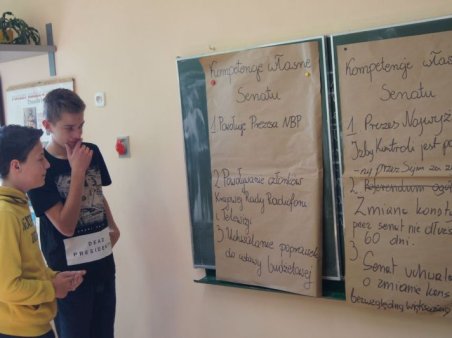 Kompetencje własne
Senatu
1 Powołuje Prezesa NBP
2 Powoływanie członków
Krajowej Rady Radiofonii
i Telewizji
3 Uchwalanie poprawek
do ustawy budżetowej
Kompetencje własne
Senatu
1 Prezes Najwyż
Izby Kontroli jest po
ny przez Sejm za
2. Referendum ogól
Zmiana konst
przez senat nie dłuż
60 dni.
3 Senat uchwal
o zmianie kons
bezwzględną większości
DEAD
PRESIDEN